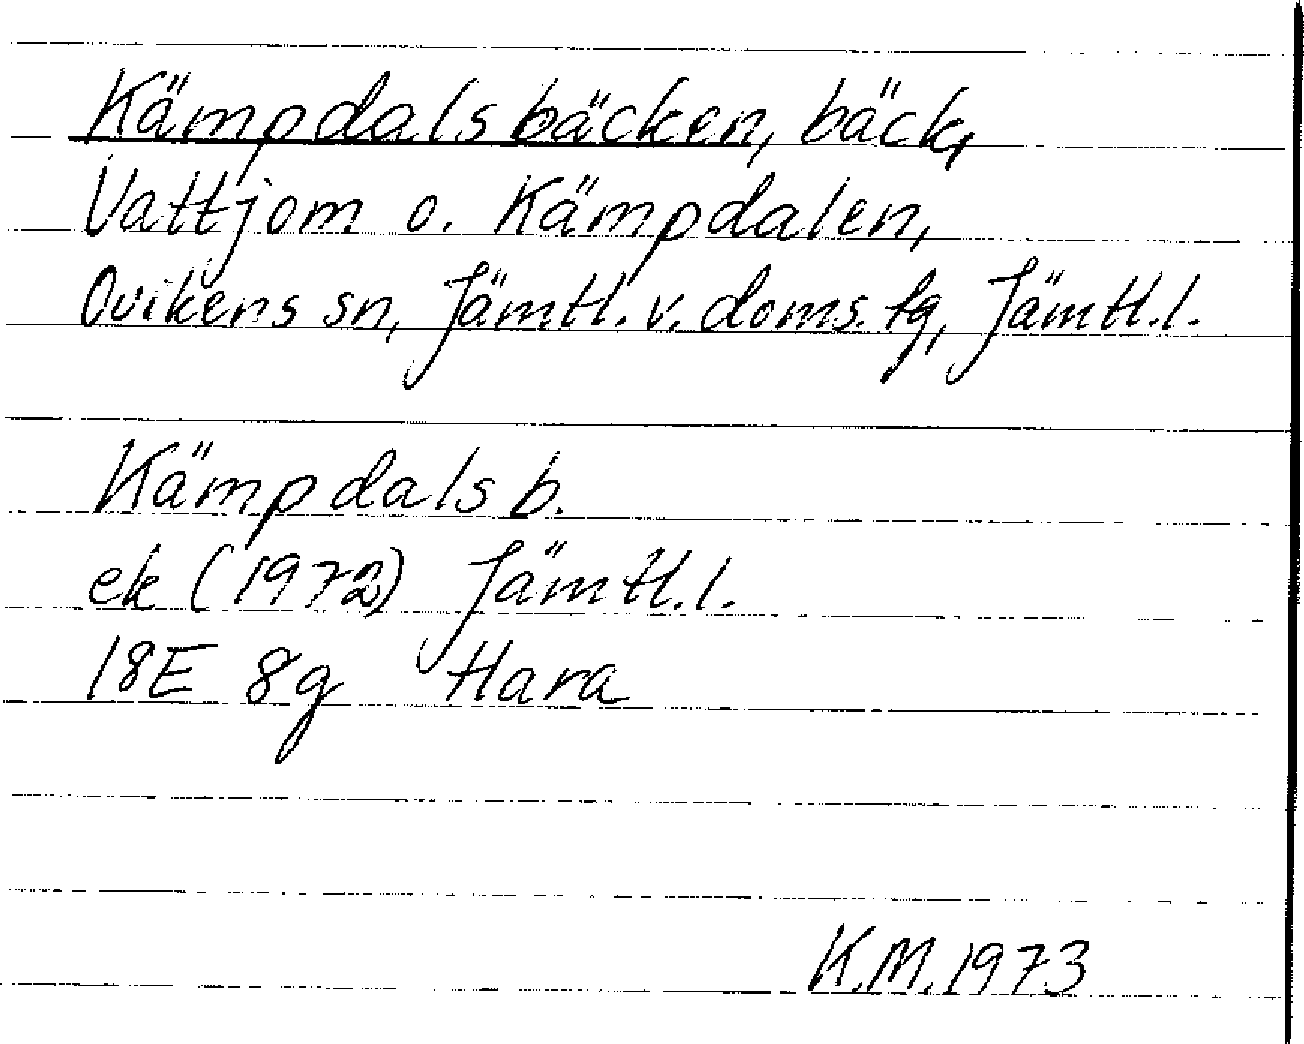 Kämpdalsbäcken, bäck,
Vattjom o. Kämpdalen,
Ovikens sn, Jämtl. v. doms. tg, Jämtl. l.
Kämpdals b.
ek (1972) Jämtl. l.
18E 8g Hara
K.M. 1973